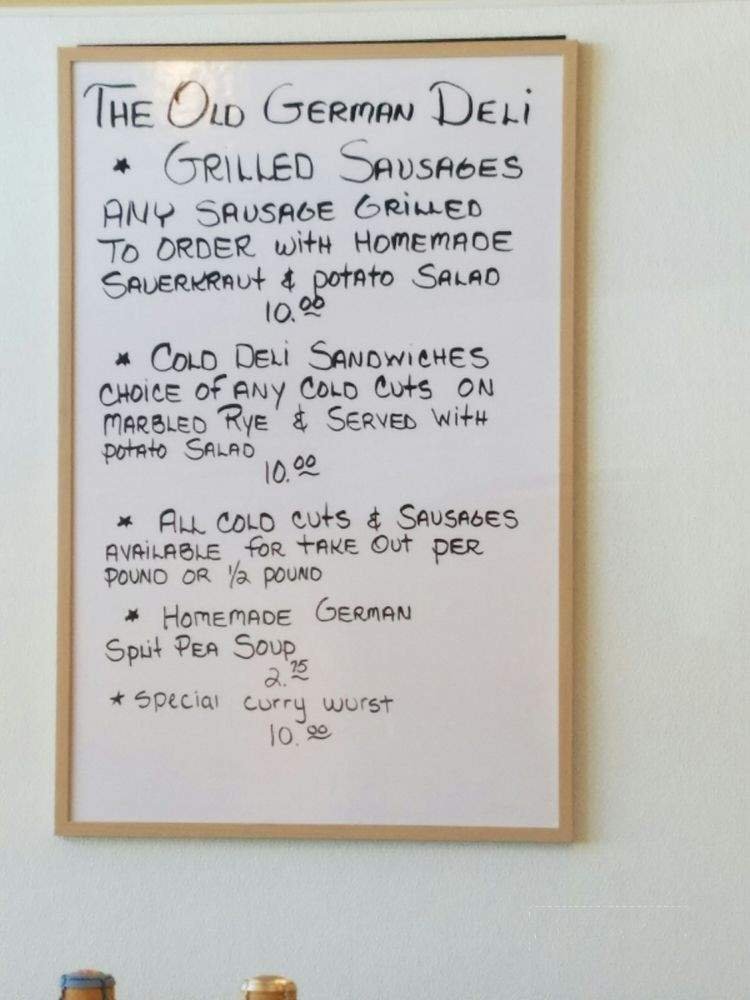 The Old German Deli
* Grilled Sausages
Any Sausage Grilled
to order with Homemade
Sauerkraut & potato Salad
10.00
* Cold Deli Sandwiches
choice of any Cold Cuts on
Marbled Rye & Served with
potato Salad
10.00
* All cold cuts & Sausages
available for take out per
pound or 1/2 pound
* Homemade German
Split Pea Soup
2.75
* special curry wurst
10.00